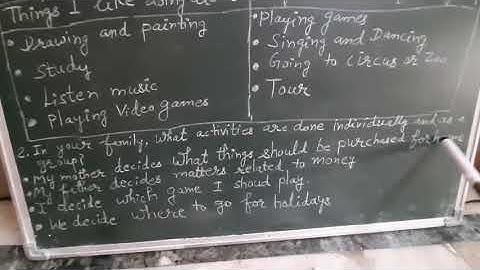 Things I like doing
• Drawing and painting
• Study
• Listen music
• Playing Video games
• Playing games
• Singing and Dancing
• Going to Circus or Zoo
• Tour
2. In your family, what activities are done individually and as a
group?
• My mother decides what things should be purchased for home
• My father decides matters related to money
• I decide which game I shoud play.
• We decide where to go for holidays